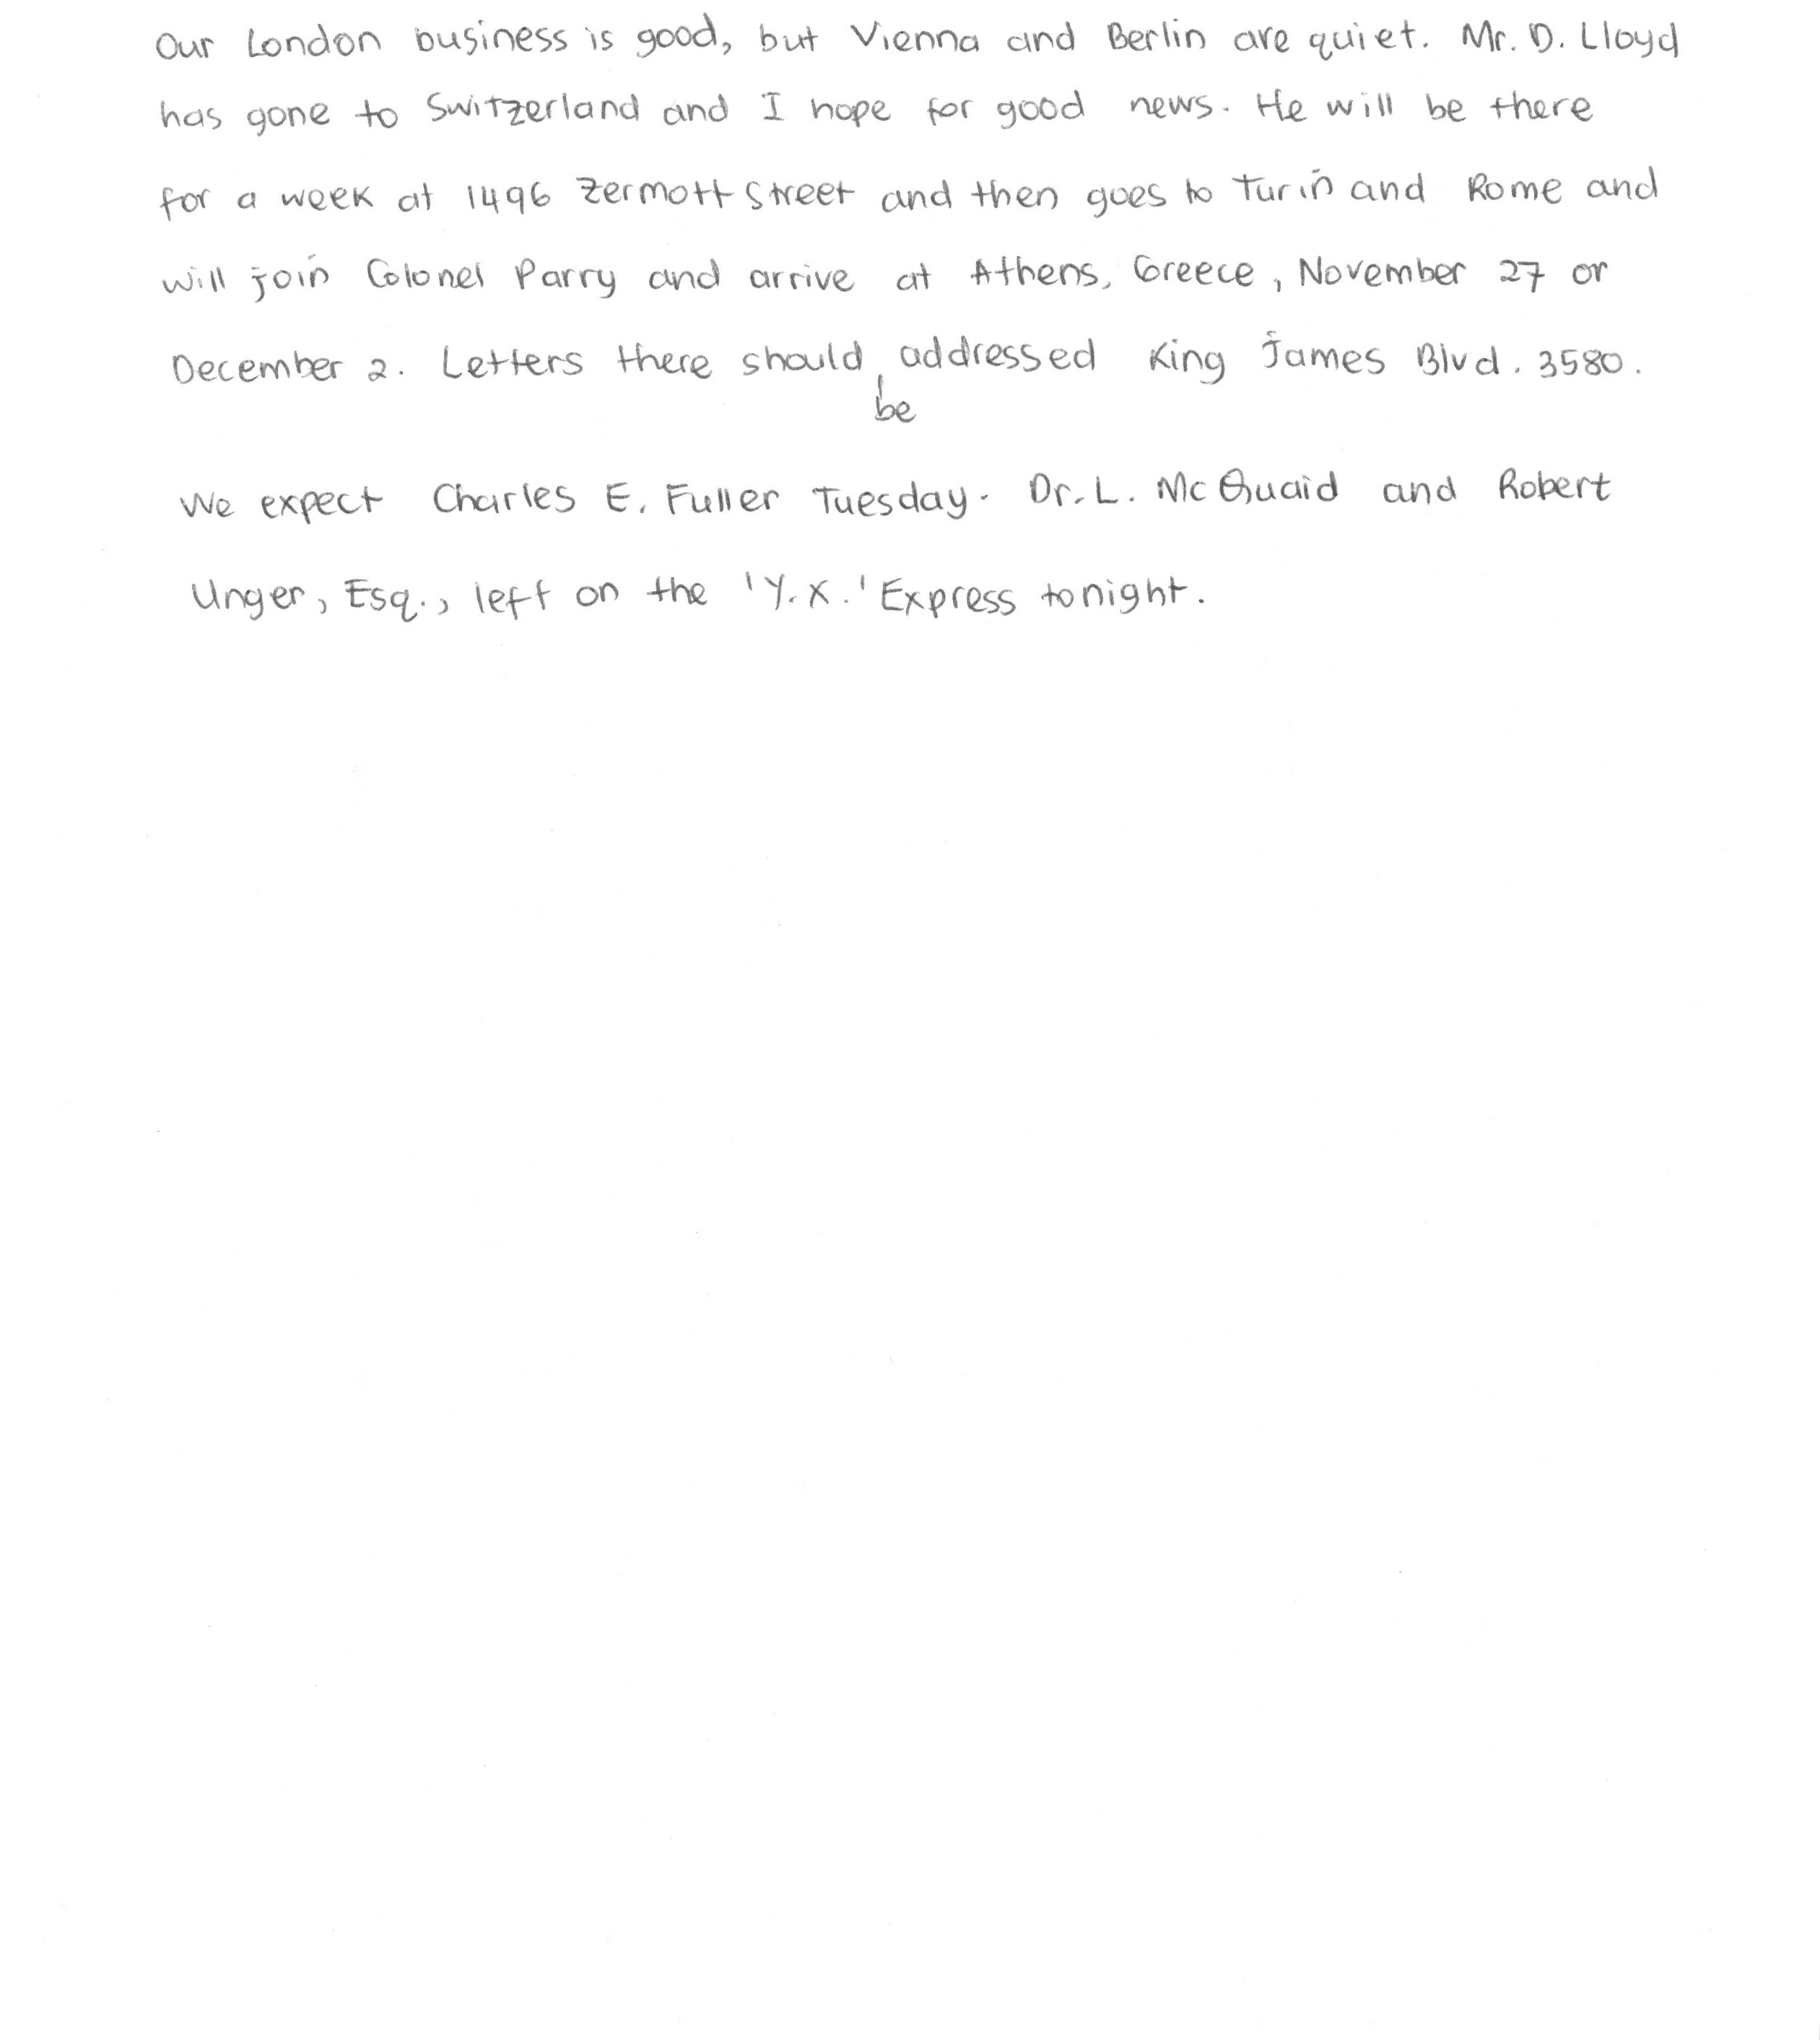 Our London business is good, but Vienna and Berlin are quiet. Mr. D. Lloyd
has gone to Switzerland and I hope for good news. He will be there
for a week at 1496 Zermott Street and then goes to Turin and Rome and
will join Colonel Parry and arrive at Athens, Greece, November 27 or
December 2. Letters there should be addressed King James Blvd. 3580.
We expect Charles E. Fuller Tuesday. Dr. L. McQuaid and Robert
Unger, Esq., left on the 'Y.X.' Express tonight.